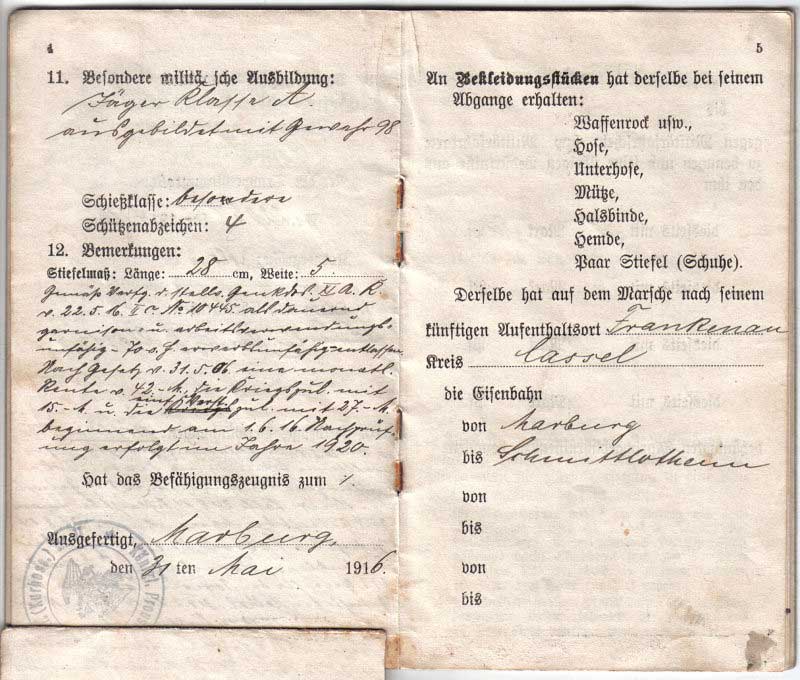 4
11. Besondere militä sche Ausbildung:
Jäger Klasse A.
ausgebildet mit Gewehr 98
Schießklasse: besondere
Schützenabzeichen: 4
12. Bemerkungen:
Stiefelmaß: Länge: 28 cm, Weite: 5
Gemäß Verfg. d. stellv. Genkdos. XI A. K
v. 22.5.16 No 10445 als dauernd
garnison- u. arbeitsverwendungs-
unfähig - 70 v. H erwerbsunfähig entlassen
Nach Gesetz v. 31.5.06 eine monatl.
Rente v. 42.-M, die Kriegszul. mit
15.-M. u. die einf. Verst. zul. mit 27.-M.
beginnend am 1.6.16 Nachprüf-
ung erfolgt im Jahre 1920.
Hat das Befähigungszeugnis zum /.
Ausgefertigt, Marburg,
den 31 ten Mai 1916.
5
An Bekleidungsstücken hat derselbe bei seinem
Abgange erhalten:
Waffenrock usw.,
Hose,
Unterhose,
Mütze,
Halsbinde,
Hemde,
Paar Stiefel (Schuhe).
Derselbe hat auf dem Marsche nach seinem
künftigen Aufenthaltsort Frankenau
Kreis Cassel
die Eisenbahn
von Marburg
bis Schmittlotheim
von
bis
von
bis